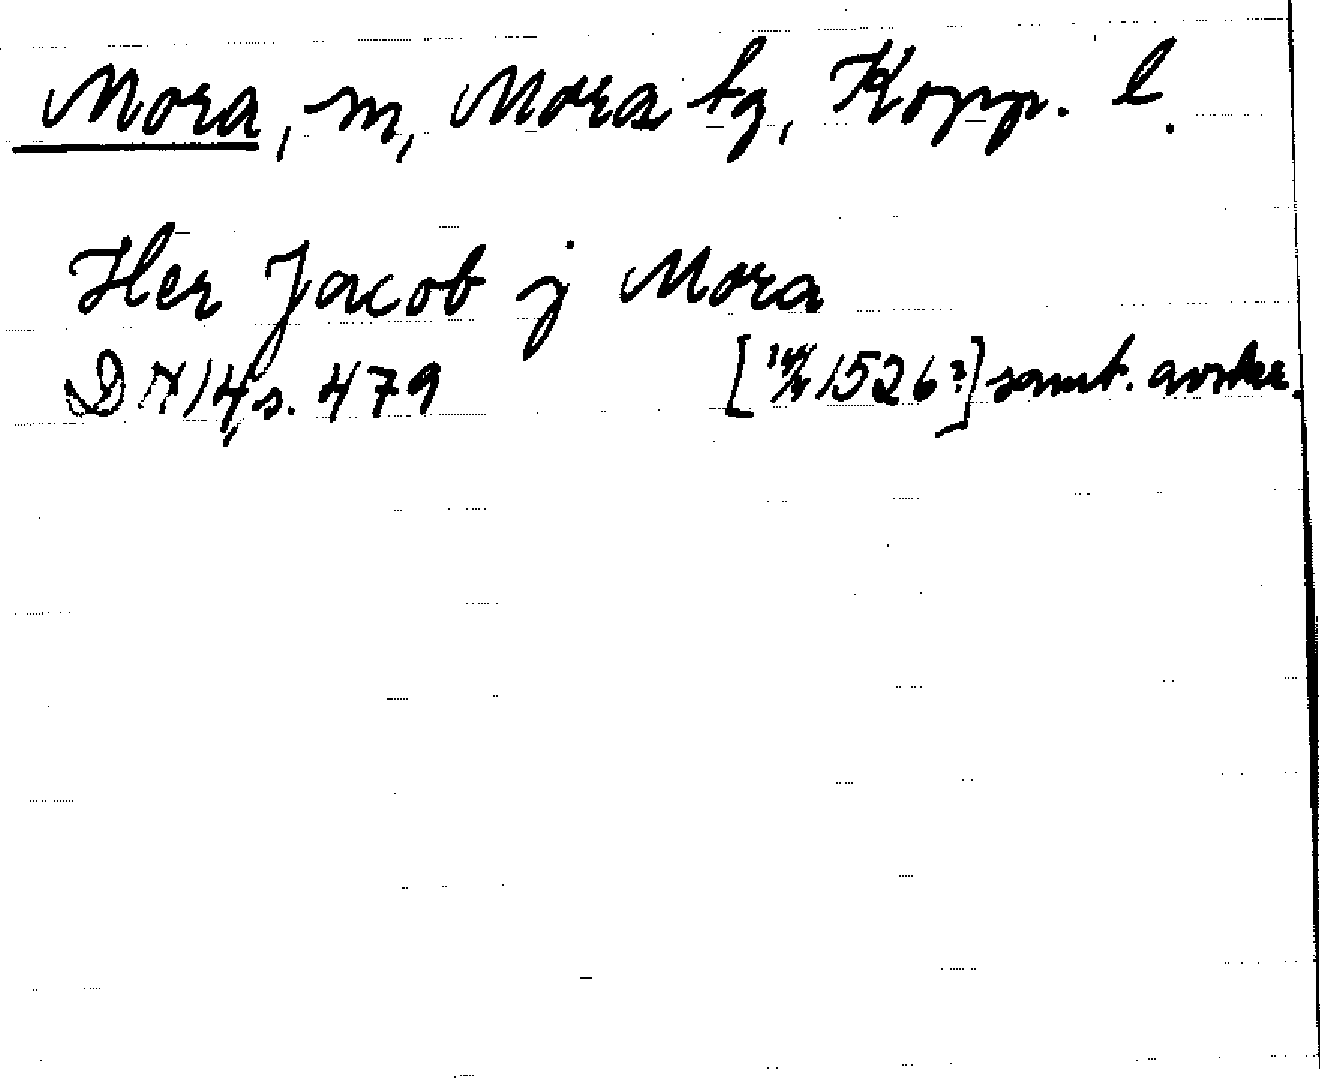 Mora, sn, Mora tg, Kopp. l.
Her Jacob j Mora
DN 14, s. 479 [ 1526?] samt. avskr.